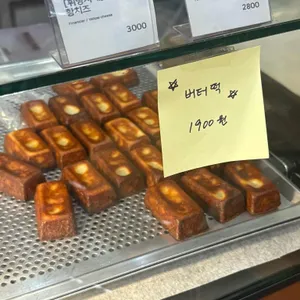 황치즈
3000
2800
☆ 버터떡 ☆
1900원